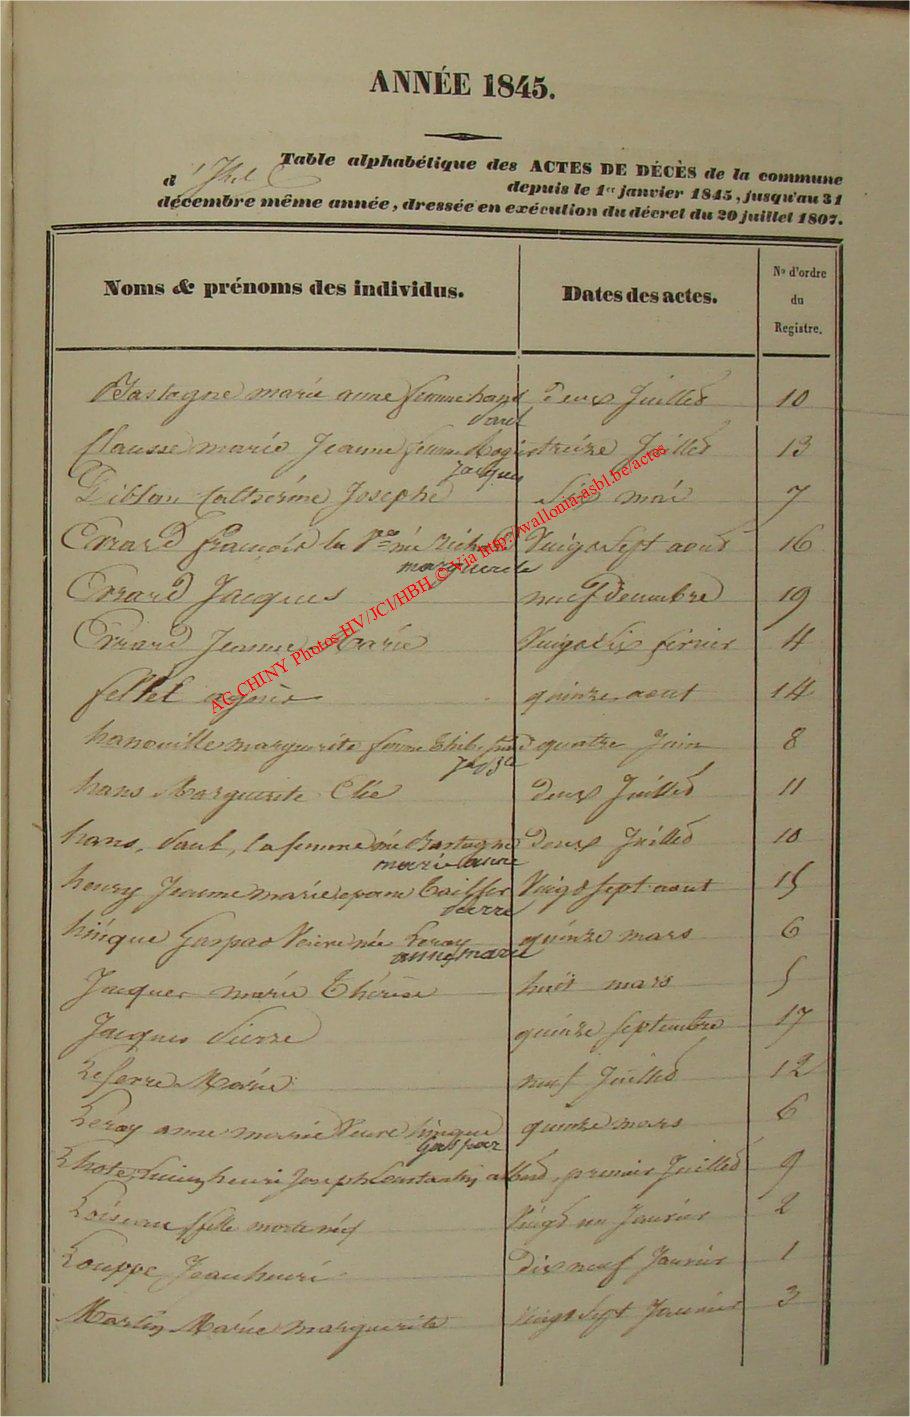 ANNÉE 1845.
Table alphabétique des ACTES DE DÉCÈS de la commune
d depuis le 1er janvier 1845, jusqu'au 31
décembre même année, dressée en exécution du décret du 20 juillet 1807.
Noms & prénoms des individus. Dates des actes. No d'ordre du Registre.
Bastogne marie anne femme hans deux Juillet 10
paul
Clausse marie Jeanne femme treize Juillet 13
Jacques
Catherine Josephe Six mai 7
Errard françois la née Vingt Sept aout 16
marguerite
Errard Jacques neuf decembre 19
Errard Jeanne Marie fevrier 4
fellet agnès quinze aout 14
hanouille marguerite femme quatre Juin 8
hans Marguerite deux Juillet 11
hans, paul, la femme née Bastogne deux Juillet 10
marie anne
henry Jeanne marie Vingt sept aout 15
pierre
hinque Gaspar née Leroy quinze mars 6
anne marie
Jacques marie Thérèse huit mars 5
Jacques Pierre quinze septembre 17
Leferre Marie neuf Juillet 12
Leroy anne marie hinque quinze mars 6
Gaspar
Lhote, henri Joseph Constantin premier Juillet 9
Loiseau Vingt un Janvier 2
Louppe Jean henri dix neuf Janvier 1
Martin Marie marguerite Vingt Sept Janvier 3
AC CHINY Photos HV/JCl/HBH © Via http://wallonia-asbl.be/actes